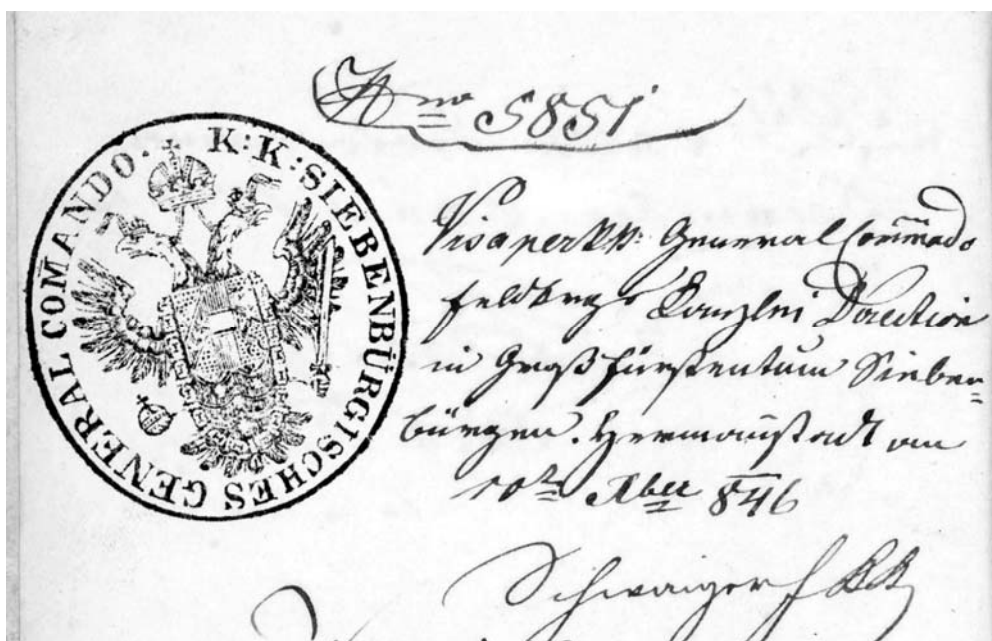 No 5851
K: K: SIEBENBÜRGISCHES GENERAL COMANDO.
Visa per KK: General Commando
Feldkrgs Kanzlei Direction
in Großfürstentum Sieben=
bürgen. Hermannstadt am
10t 8546
Schwaiger